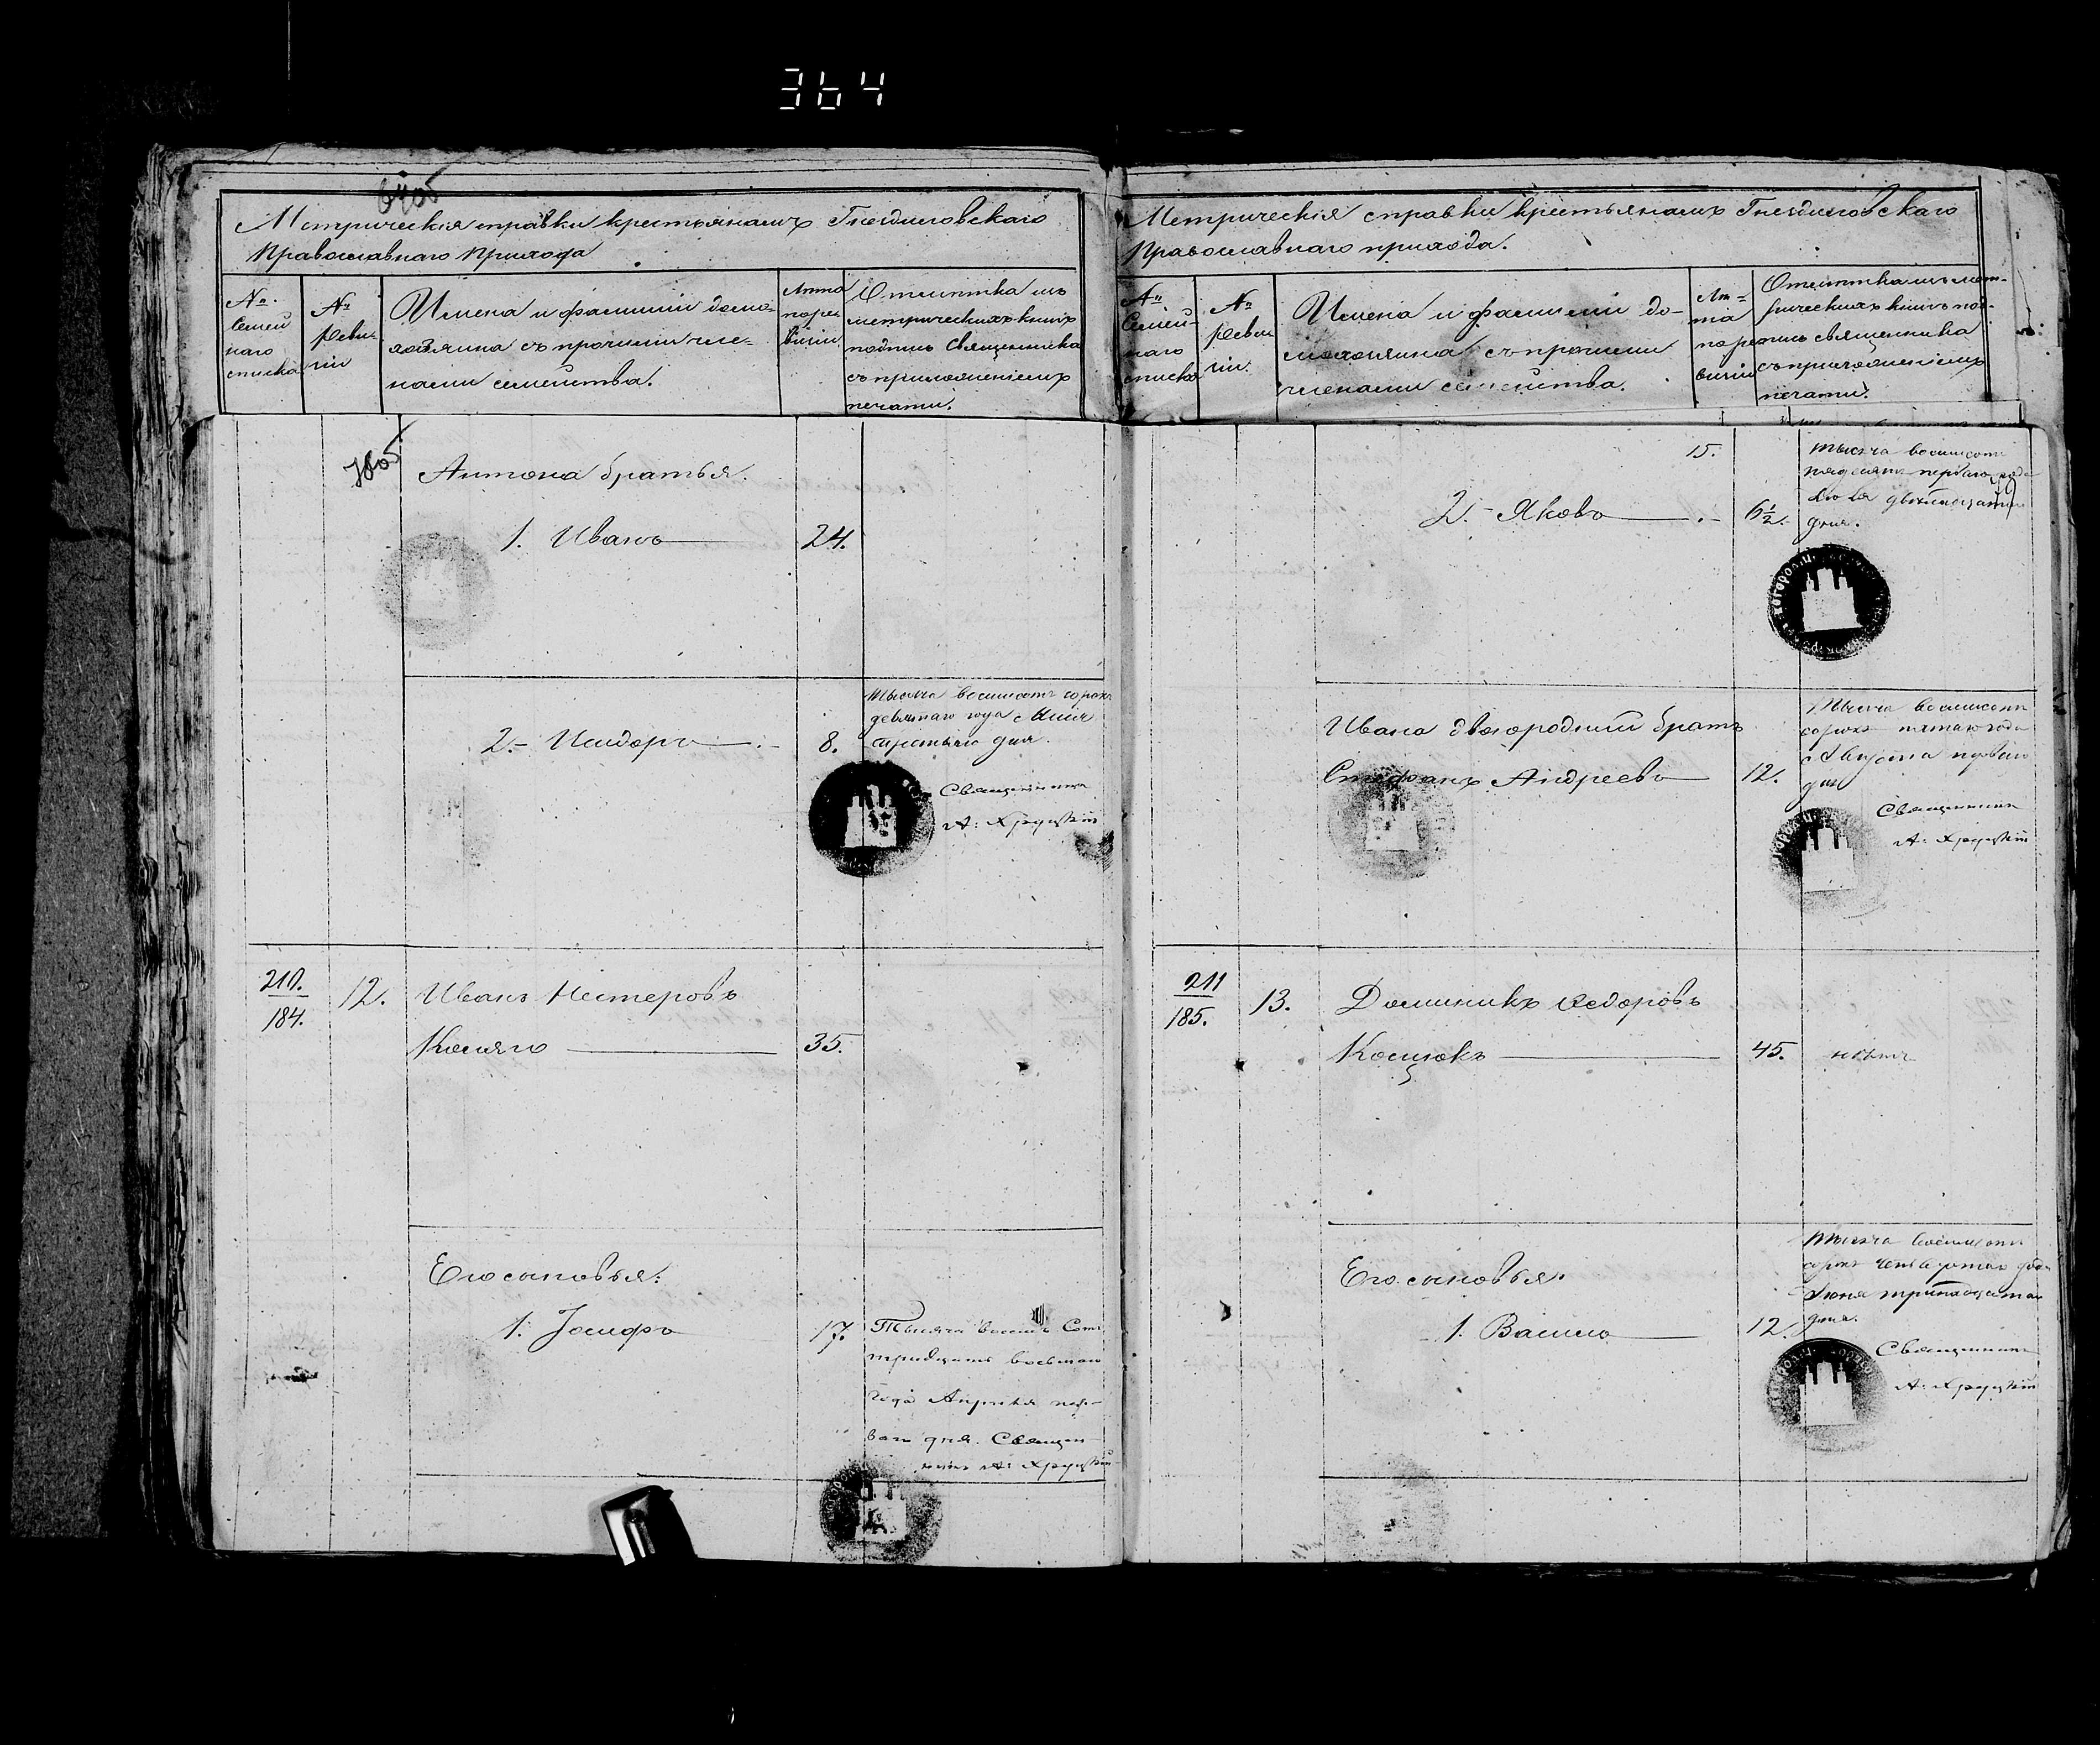 364
Метрическія справки крестьянамъ Гнездиловскаго
Православнаго Прихода
№
Семей
наго
списка
№
Реви-
зіи
Имена и фамиліи домо-
хозяина съ прочими чле-
нами семейства.
Лѣта
по ре-
визіи
Отмѣтка изъ
метрическихъ книгъ
подпись Священника
съ приложеніемъ
печати.
Антона братья.
1. Иванъ 24.
2.- Исидоръ 8.
тысяча восемьсотъ сорокъ
девятаго года Маія
третьяго дня.
Священникъ
А. Хруцкій
210.
184.
12.
Иванъ Нестеровъ
35.
Его сыновья:
1. Іосифъ 17.
Тысяча восемь Сотъ
тридцать восьмаго
года Апрѣля пер-
ваго дня. Священ
никъ А. Хруцкій
Метрическія справки крестьянамъ Гнездиловскаго
Православнаго прихода.
№
Семей-
наго
списка
№
Реви
зіи.
Имена и фамиліи до-
мохозяина съ прочими
членами семейства.
Лѣ-
та
по ре
визіи
Отмѣтка изъ мет-
рическихъ книгъ под-
пись священника
съ приложеніемъ
печати.
15.
2.- Яковъ 6½.
тысяча восемьсотъ
пядесятъ перваго года
двѣнадцатаго
дня.
Ивана двоюродный братъ
Стефанъ Андреевъ 12.
Тысяча восемьсотъ
сорокъ пятаго года
Августа перваго
дня
Священникъ
А. Хруцкій
211
185.
13.
Доминикъ Ѳедоровъ
Косцюкъ 45.
нѣтъ
Его сыновья:
1. Василь 12.
тысяча восемьсотъ
сорокъ четвертаго года
Іюня тринадцатаго
дня.
Священникъ
А. Хруцкій